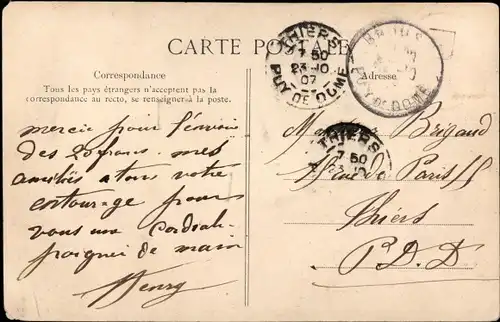 CARTE POSTALE
Correspondance
Tous les pays étrangers n'acceptent pas la
correspondance au recto, se renseigner à la poste.
Adresse
THIERS
7 50
23-10
07
PUY-DE-DOME
PUY-DE-DOME
THIERS
7 50
mercie pour l'envoie
des
mes
amitiés a tous votre
entour-ge pour
vous une Cordiale
poignei de main
Henry
Monsieur Brigaud
de Paris
Thiers
P.D.D.